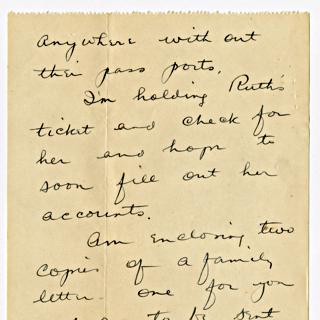 anywhere with out
their pass ports.
I'm holding Ruth's
ticket and check for
her and hope to
soon fill out her
accounts.
Am enclosing two
copies of a family
letter one for you
to be sent